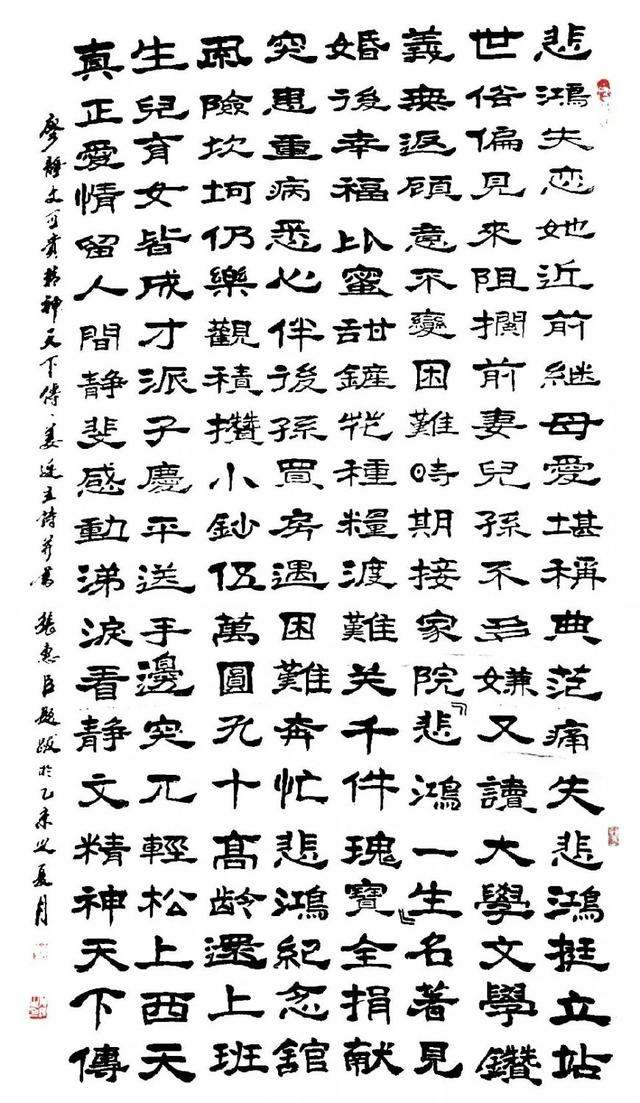 悲鴻失恋她近前継母愛堪稱典范痛失悲鴻挺立站
世俗偏見來阻攔前妻兒孫不多嫌又讀大學文學鑽
義無返顧意不變困難時期接家院『悲鴻一生』名著見
婚後幸福比蜜甜鏟花種糧渡難关千件瑰寶全捐献
突患重病悉心伴後孫買房遇困難奔忙悲鴻紀念館
風險坎坷仍樂觀積攢小鈔伍萬圓九十高齡還上班
生兒育女皆成才派子慶平送手邊突兀輕松上西天
真正愛情留人間静斐感動涕淚看静文精神天下傳
廖静文可貴精神天下傳、姜廷立詩并書 張惠臣題跋於乙未之夏月